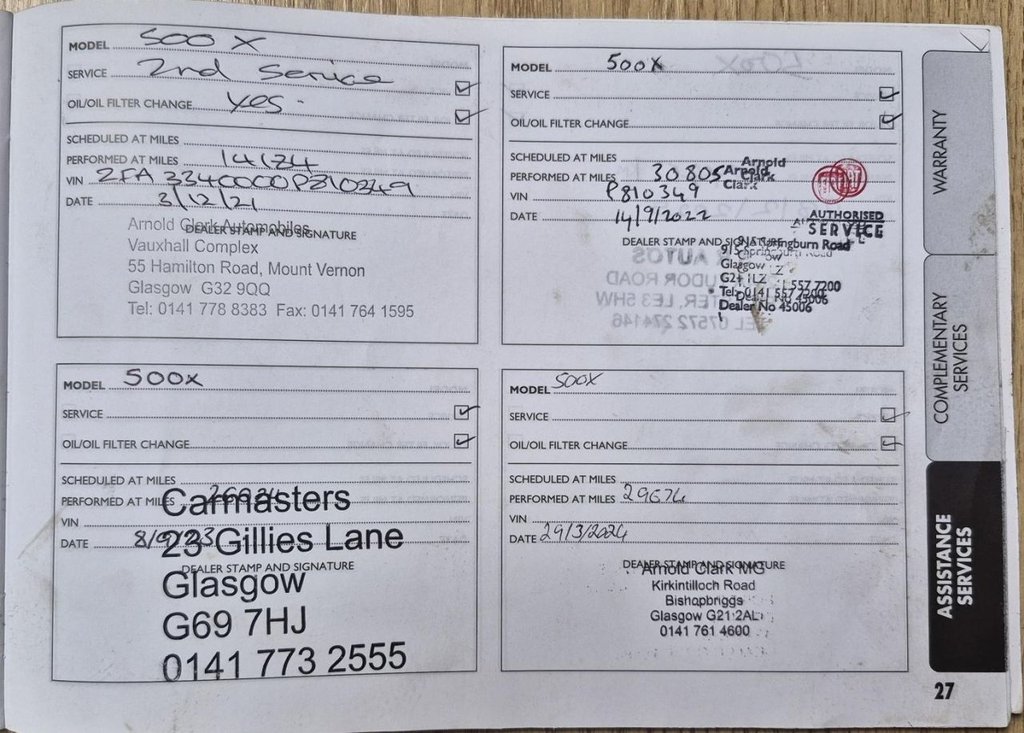 MODEL 500 X
SERVICE 2nd Service
OIL/OIL FILTER CHANGE Yes.
SCHEDULED AT MILES
PERFORMED AT MILES 14174
VIN ZFA 3340000P810349
DATE 3/12/21
DEALER STAMP AND SIGNATURE
Arnold Clark Automobiles
Vauxhall Complex
55 Hamilton Road, Mount Vernon
Glasgow G32 9QQ
Tel: 0141 778 8383 Fax: 0141 764 1595
MODEL 500X
SERVICE
OIL/OIL FILTER CHANGE
SCHEDULED AT MILES
PERFORMED AT MILES 30805
VIN P810349
DATE 14/9/2022
Arnold
Clark
AUTHORISED
SERVICE
DEALER STAMP AND SIGNATURE
Springburn Road
Glasgow
Tel: 0141 557 7200
Dealer No 45006
MODEL 500x
SERVICE
OIL/OIL FILTER CHANGE
SCHEDULED AT MILES
PERFORMED AT MILES
VIN
DATE
DEALER STAMP AND SIGNATURE
Carmasters
23 Gillies Lane
Glasgow
G69 7HJ
0141 773 2555
MODEL 500X
SERVICE
OIL/OIL FILTER CHANGE
SCHEDULED AT MILES
PERFORMED AT MILES 29674
VIN
DATE 29/3/2024
DEALER STAMP AND SIGNATURE
Arnold Clark MG
Kirkintilloch Road
Bishopbriggs
Glasgow G21 2AL
0141 761 4600
WARRANTY
COMPLEMENTARY
SERVICES
ASSISTANCE
SERVICES
27